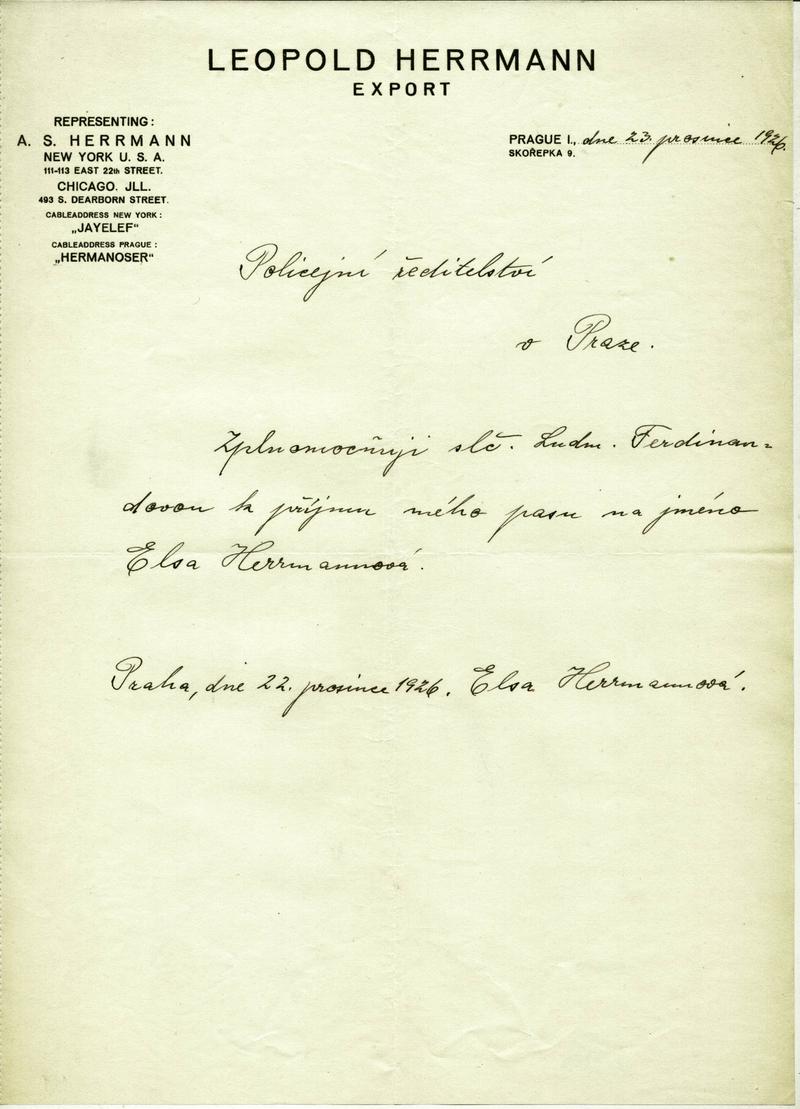 LEOPOLD HERRMANN
EXPORT
REPRESENTING:
A. S. HERRMANN
NEW YORK U. S. A.
111-113 EAST 22th STREET.
CHICAGO. JLL.
493 S. DEARBORN STREET.
CABLEADDRESS NEW YORK:
„JAYELEF“
CABLEADDRESS PRAGUE:
„HERMANOSER“
PRAGUE I., dne 23. prosince 1926.
SKOŘEPKA 9.
Policejní ředitelství
v Praze.
Zplnomocňuji slč. Ludm. Ferdinan=
dovou k příjmu mého pasu na jméno
Elsa Herrmannová.
Praha, dne 22. prosince 1926. Elsa Herrmannová.